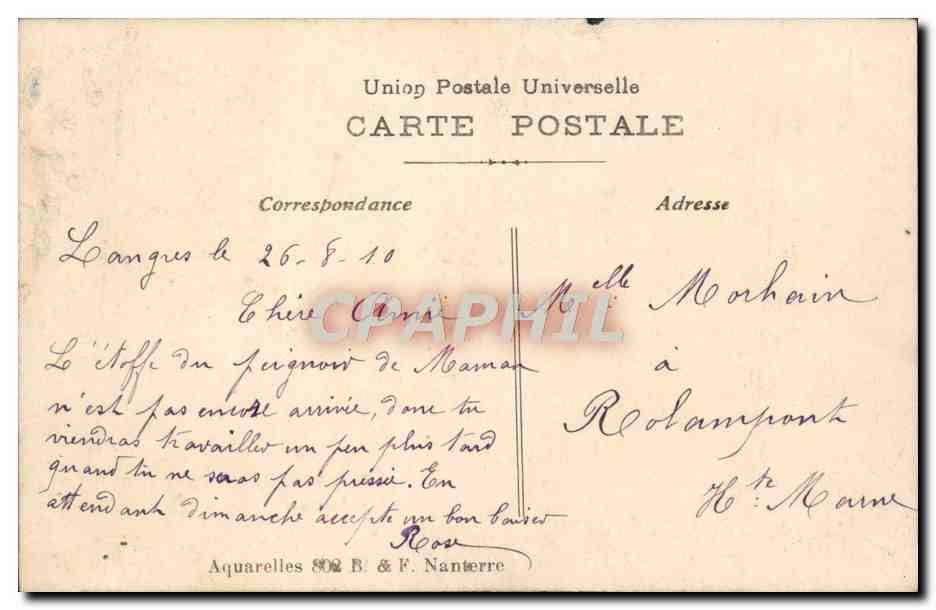 Union Postale Universelle
CARTE POSTALE
Correspondance
Adresse
Langres le 26-8-10
Chère Amie
L'étoffe du peignoir de Maman
n'est pas encore arrivée, donc tu
viendras travailler un peu plus tard
quand tu ne seras pas pressée. En
attendant dimanche accepte un bon baiser
Rose
Melle Morhain
à
Rolampont
Hte Marne
CPAPHIL
Aquarelles 802 B. & F. Nanterre